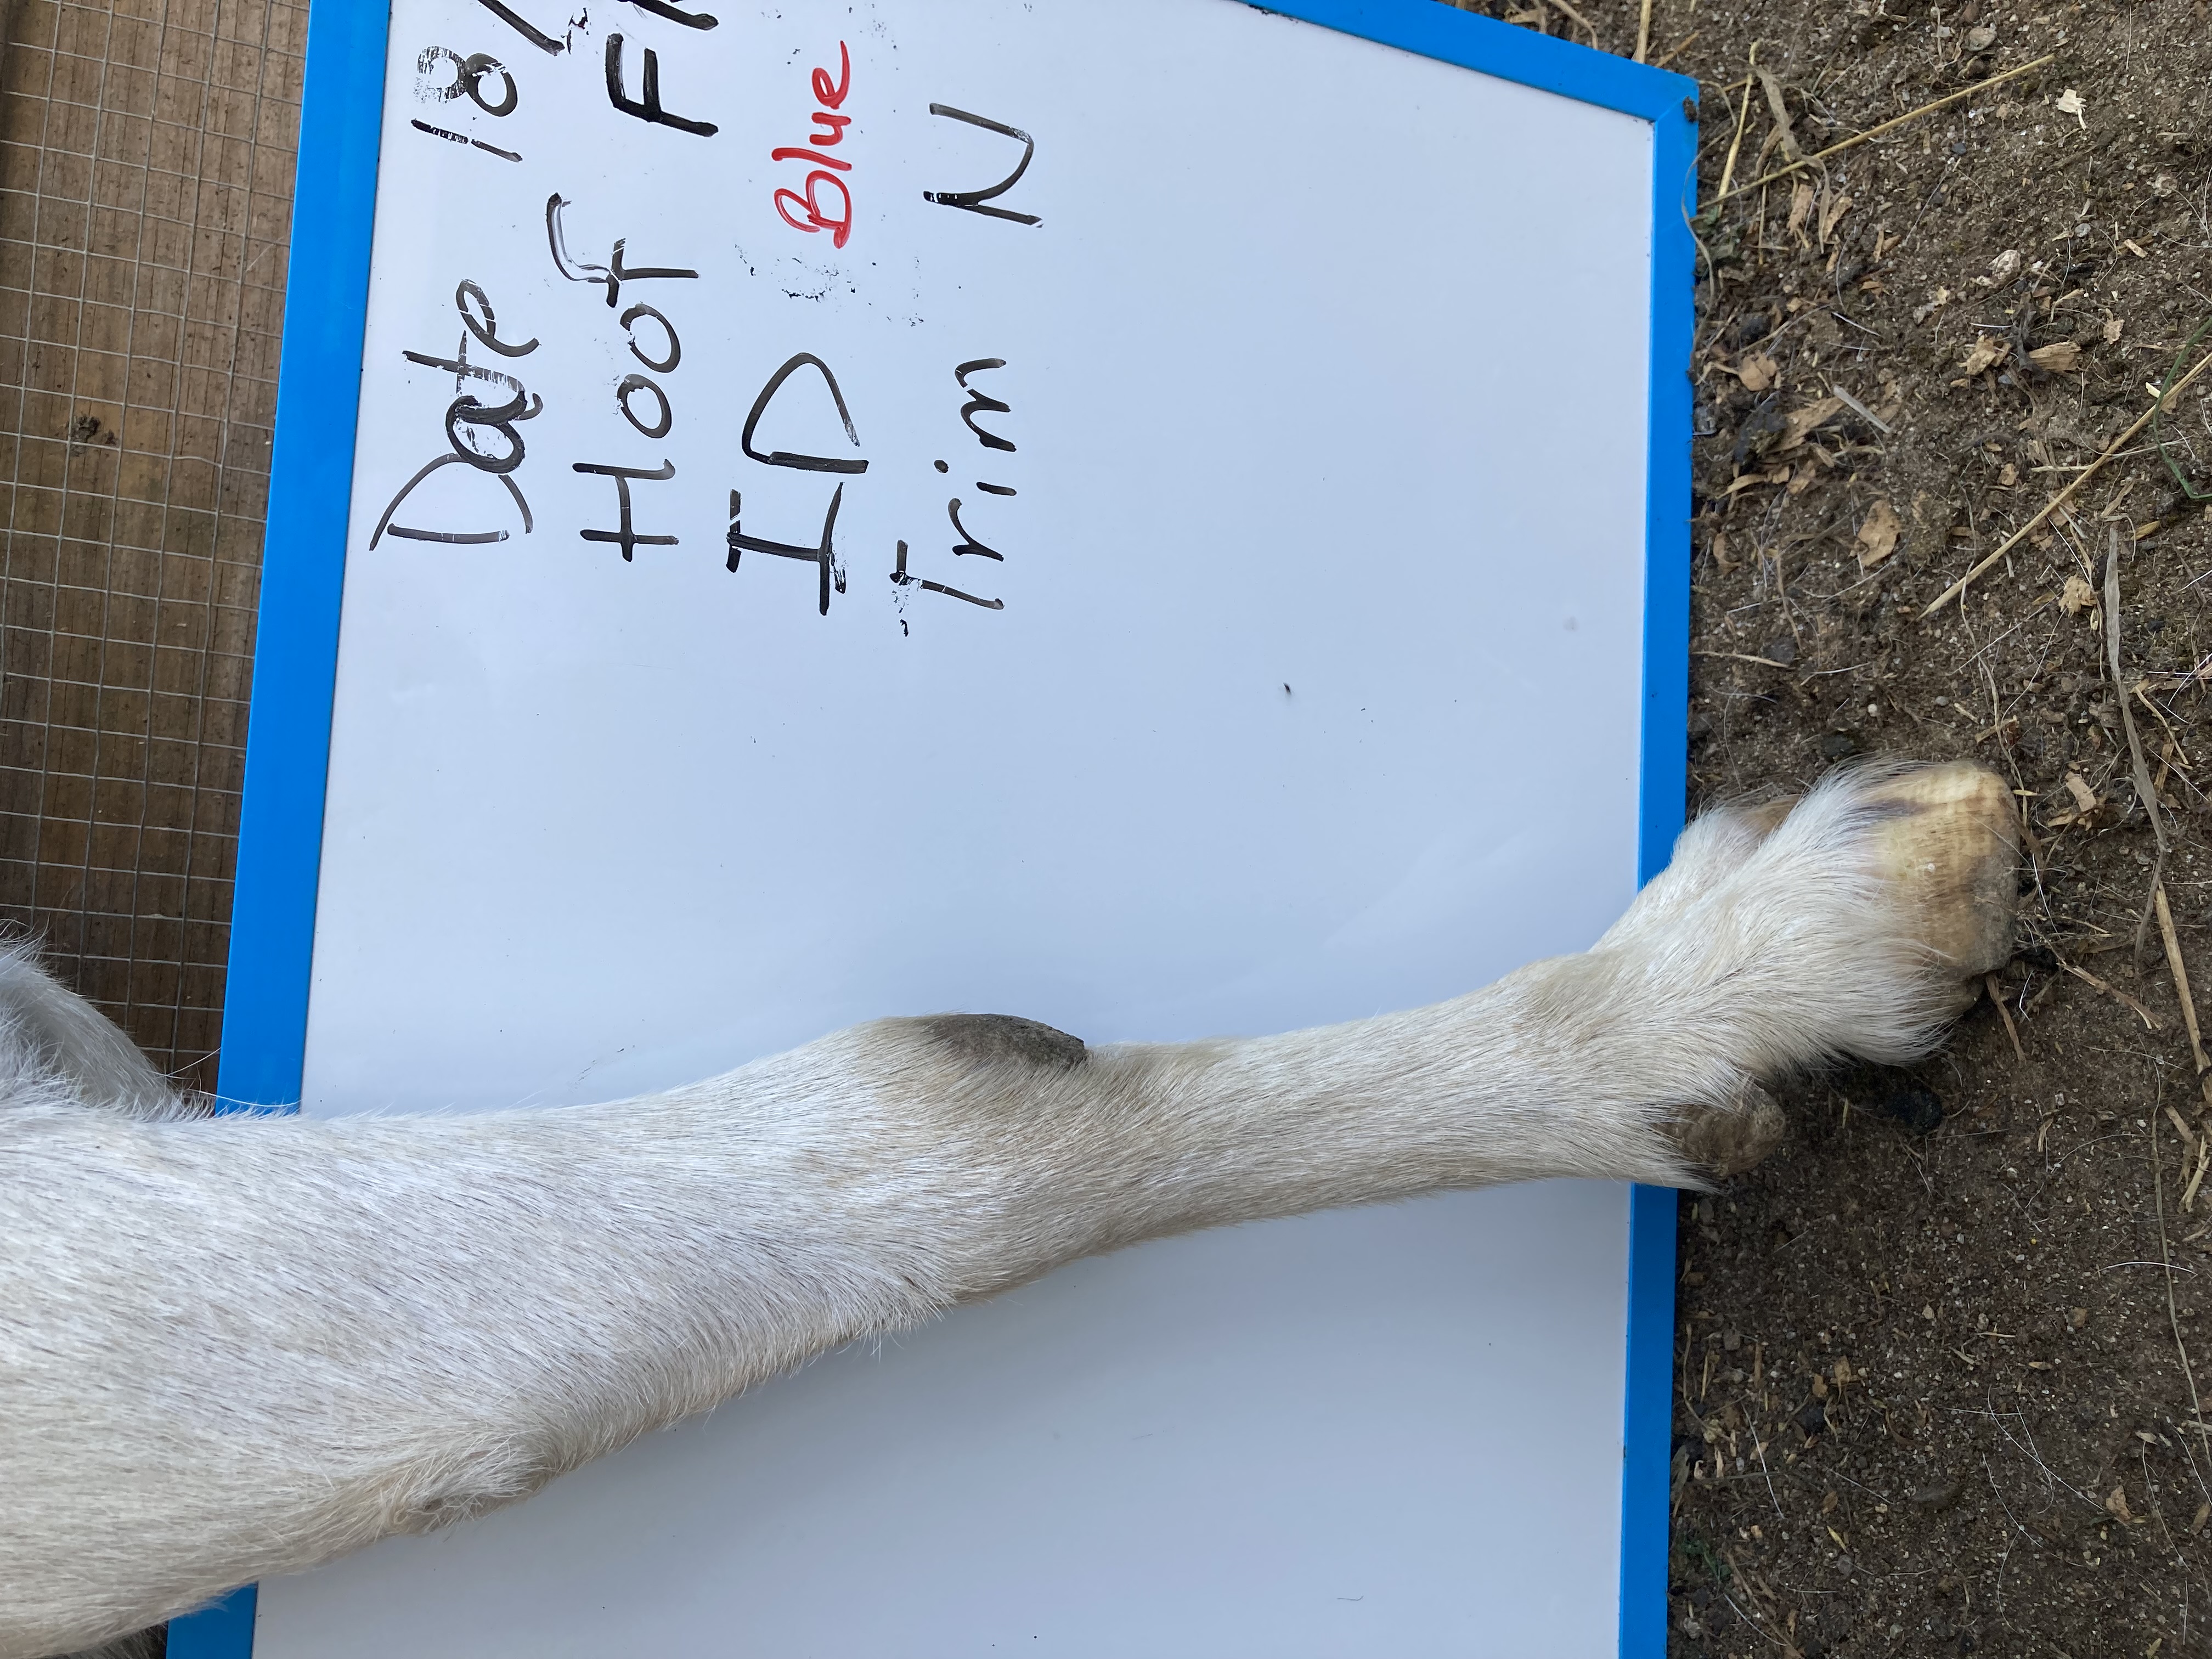 Date 18/
Hoof FR
ID Blue
Trim N